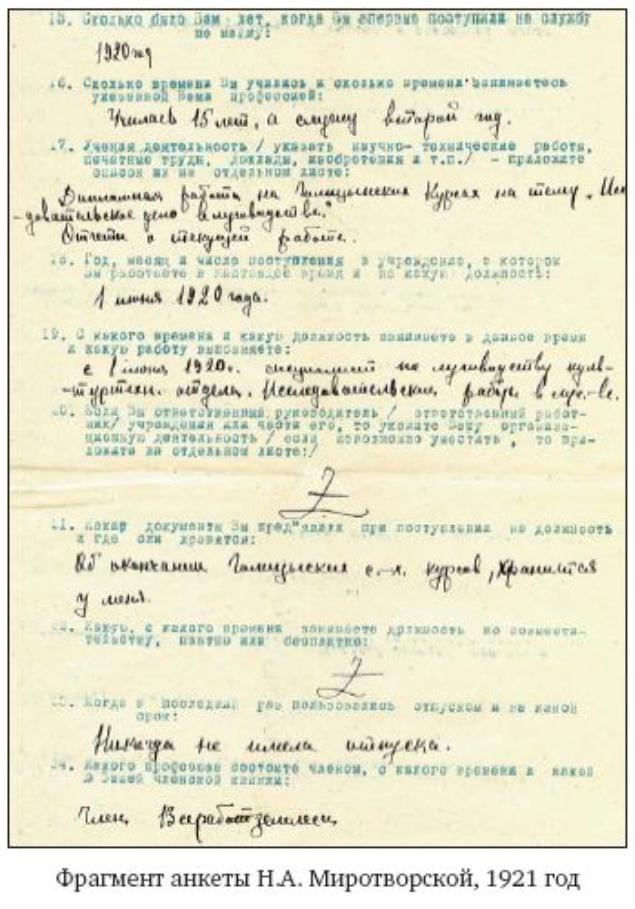 15. Сколько было Вам лет, когда Вы впервые поступили на службу
по найму:
1920 год
16. Сколько времени Вы учились и сколько времени занимаетесь
указанной Вами профессией:
Училась 15 лет, а служу второй год.
17. Ученая деятельность / указать научно-технические работы,
печатные труды, доклады, изобретения и т.п./ - приложите
список их на отдельном листе:
Дипломная работа на Голицынских Курсах на тему „Исс
-довательское дело в луговодстве."
Отчеты о текущей работе.
18. Год, месяц и число поступления в учреждение, в котором
Вы работаете в настоящее время и на какую должность:
1 июня 1920 года.
19. С какого времени и какую должность занимаете в данное время
и какую работу выполняете:
с 1 июня 1920г. специалист по луговодству куль-
-туртехн. отдела. Исследовательские работы в луг-ве.
20. Если Вы ответственный руководитель / ответственный работ-
ник/ учреждения или части его, то укажите Вашу организа-
ционную деятельность / если невозможно уместить, то при-
ложите на отдельном листе:/
Z
21. Какие документы Вы пред"явили при поступлении на должность
и где они хранятся:
Об окончании Голицынских с.-х. курсов, хранится
у меня.
22. Какую, с какого времени занимаете должность по совмести-
тельству, платно или бесплатно:
Z
23. Когда в последний раз пользовались отпуском и на какой
срок:
Никогда не имела отпуска.
24. Какого профсоюза состоите членом, с какого времени и какой
№ Вашей членской книжки:
Член Всеработземлеса
Фрагмент анкеты Н.А. Миротворской, 1921 год